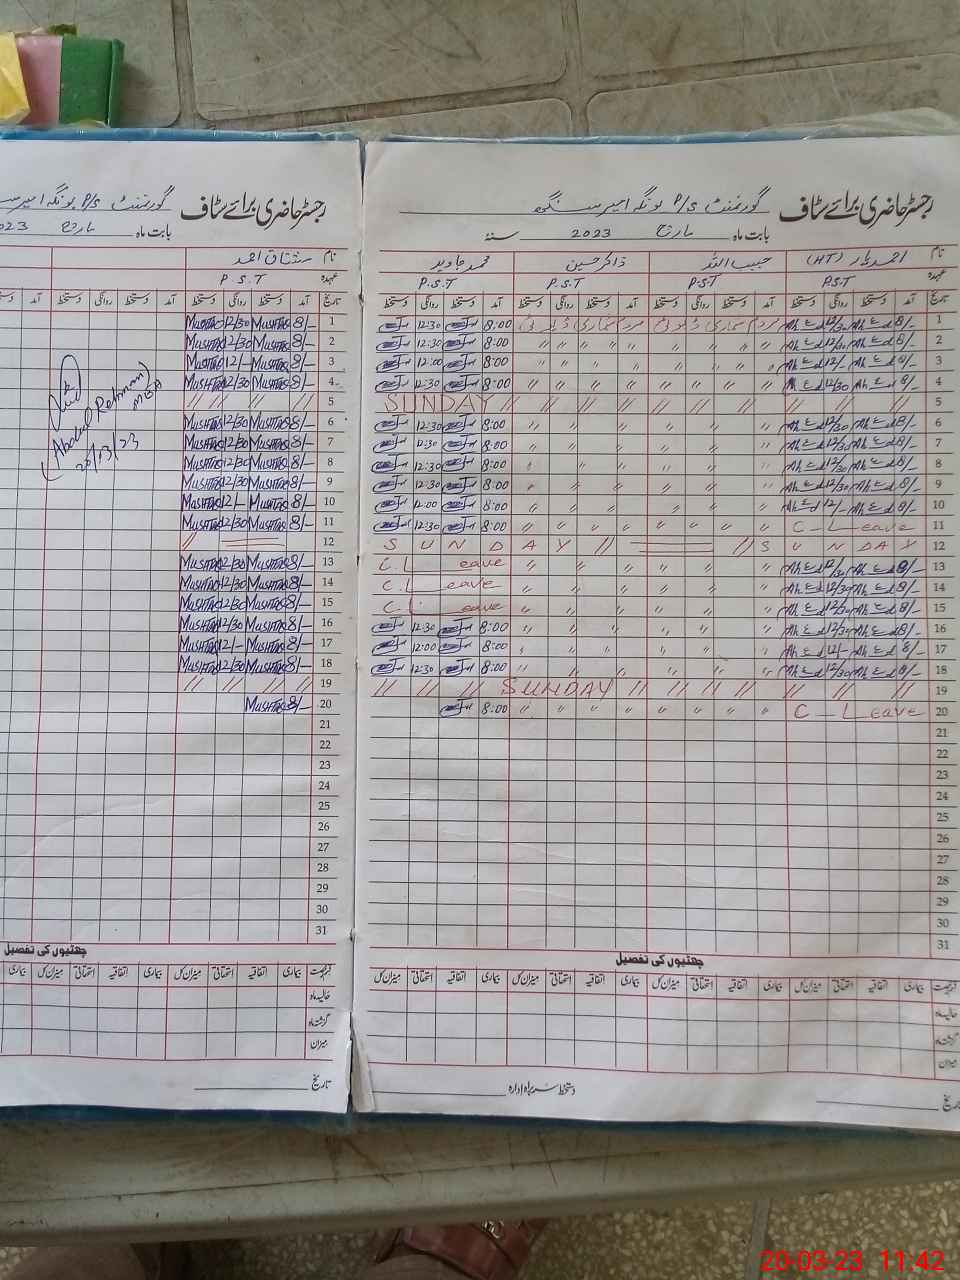 رجسٹر حاضری برائے سٹاف گورنمنٹ P/S بونگہ امیر سنگھ
بابت ماہ مارچ 2023 سنہ
نام احمد یار (HT) حبیب اللہ ذاکر حسین محمد جاوید
عہدہ P.S.T P.S.T P.S.T P.S.T
تاریخ آمد دستخط روانگی دستخط آمد دستخط روانگی دستخط آمد دستخط روانگی دستخط آمد دستخط روانگی دستخط
1 8/- 12/30 مردم شماری ڈیوٹی مردم شماری ڈیوٹی 8:00 12:30
2 8/- 12/30 〃 〃 〃 〃 〃 〃 8:00 12:30
3 8/- 12/- 〃 〃 〃 〃 〃 〃 8:00 12:00
4 8/- 12/30 〃 〃 〃 〃 〃 〃 8:00 12:30
5 SUNDAY // // // // // // //
6 8/- 12/30 〃 〃 〃 〃 〃 8:00 12:30
7 8/- 12/30 〃 〃 〃 〃 〃 8:00 12:30
8 8/- 12/30 〃 〃 〃 〃 〃 8:00 12:30
9 8/- 12/30 〃 〃 〃 〃 〃 8:00 12:30
10 8/- 12/- 〃 〃 〃 〃 〃 8:00 12:00
11 C-Leave 〃 〃 〃 〃 〃 〃 8:00 12:30
12 SUNDAY // // SUNDAY
13 8/- 12/30 〃 〃 〃 〃 〃 C.Leave
14 8/- 12/30 〃 〃 〃 〃 〃 C.Leave
15 8/- 12/30 〃 〃 〃 〃 〃 C.Leave
16 8/- 12/30 〃 〃 〃 〃 〃 8:00 12:30
17 8/- 12/- 〃 〃 〃 〃 〃 8:00 12:00
18 8/- 12/30 〃 〃 〃 〃 〃 8:00 12:30
19 // // // SUNDAY // // // // // // //
20 C-Leave 〃 〃 〃 〃 〃 〃 8:00
21
22
23
24
25
26
27
28
29
30
31
چھٹیوں کی تفصیل
قسم رخصت بیماری اتفاقیہ استحقاقی میزان کل بیماری اتفاقیہ استحقاقی میزان کل بیماری اتفاقیہ استحقاقی میزان کل بیماری اتفاقیہ استحقاقی میزان کل
حالیہ ماہ
گزشتہ ماہ
میزان
تاریخ دستخط سربراہ ادارہ
رجسٹر حاضری برائے سٹاف گورنمنٹ P/S بونگہ امیر
بابت ماہ مارچ 023
نام مشتاق احمد
عہدہ P.S.T
تاریخ آمد دستخط روانگی دستخط آمد دستخط روانگی دستخط آمد
1 8/- MUSHTAQ 12/30 MUSHTAQ
2 8/- MUSHTAQ 12/30 MUSHTAQ
3 8/- MUSHTAQ 12/- MUSHTAQ
4 8/- MUSHTAQ 12/30 MUSHTAQ
5 // // // //
6 8/- MUSHTAQ 12/30 MUSHTAQ
7 8/- MUSHTAQ 12/30 MUSHTAQ
8 8/- MUSHTAQ 12/30 MUSHTAQ
9 8/- MUSHTAQ 12/30 MUSHTAQ
10 8/- MUSHTAQ 12/- MUSHTAQ
11 8/- MUSHTAQ 12/30 MUSHTAQ
12 //
13 8/- MUSHTAQ 12/30 MUSHTAQ
14 8/- MUSHTAQ 12/30 MUSHTAQ
15 8/- MUSHTAQ 12/30 MUSHTAQ
16 8/- MUSHTAQ 12/30 MUSHTAQ
17 8/- MUSHTAQ 12/- MUSHTAQ
18 8/- MUSHTAQ 12/30 MUSHTAQ
19 // // // //
20 8/- MUSHTAQ
21
22
23
24
25
26
27
28
29
30
31
(Abdul Rehman)
MEA
20/03/23
چھٹیوں کی تفصیل
قسم رخصت بیماری اتفاقیہ استحقاقی میزان کل بیماری اتفاقیہ استحقاقی میزان کل بیماری
حالیہ ماہ
گزشتہ ماہ
میزان
تاریخ
20-03-23 11:42